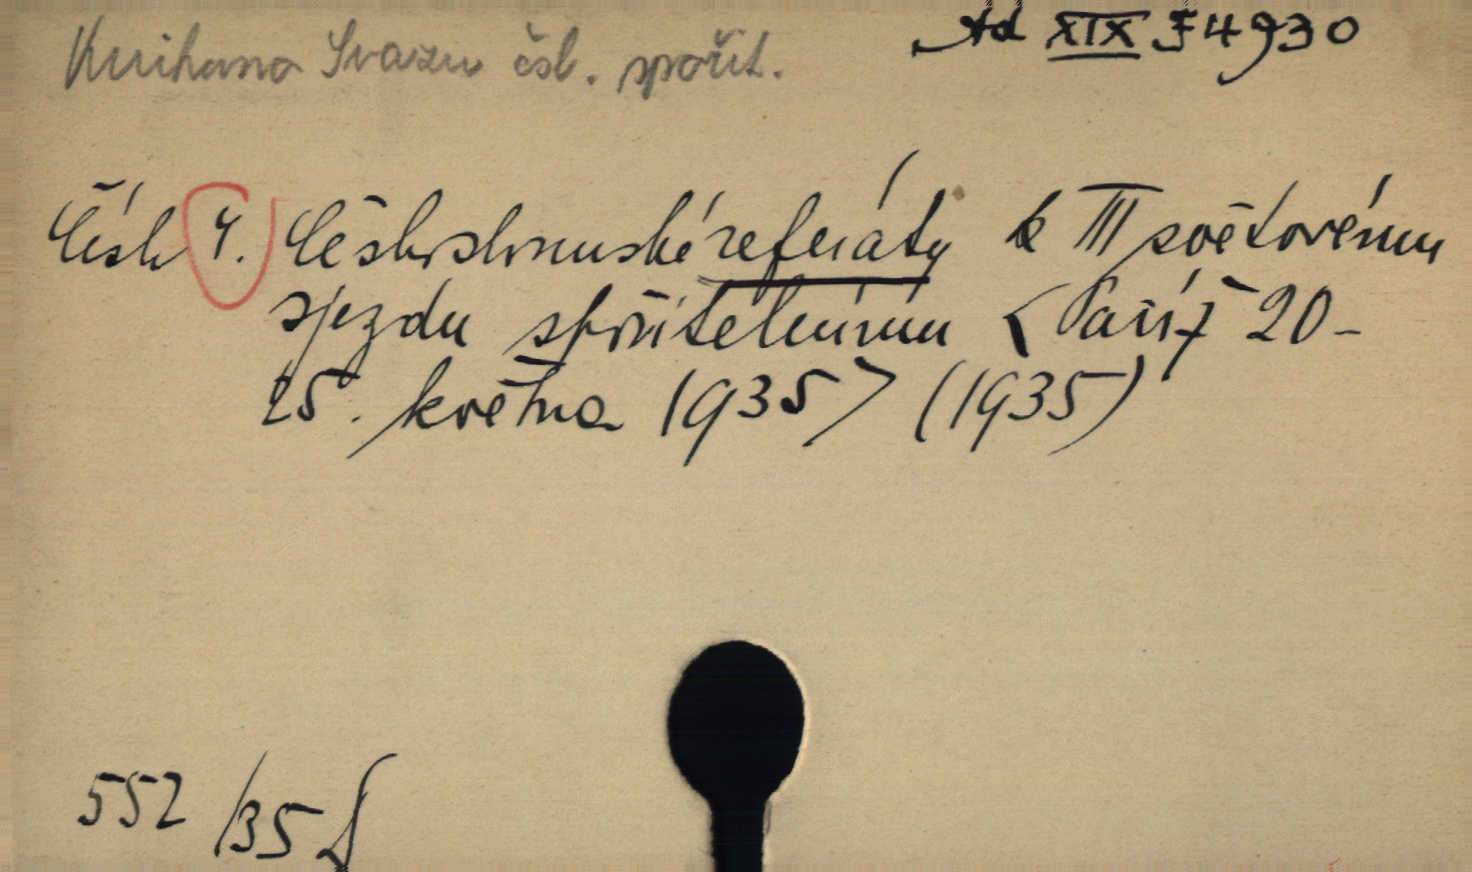 Knihovna Svazu čsl. spořit.
Ad XIX F 4930
Čísl. 4. Československé referáty k III světovému
sjezdu spořitelnímu <Paříž 20-
25. května 1935> (1935)
552/35